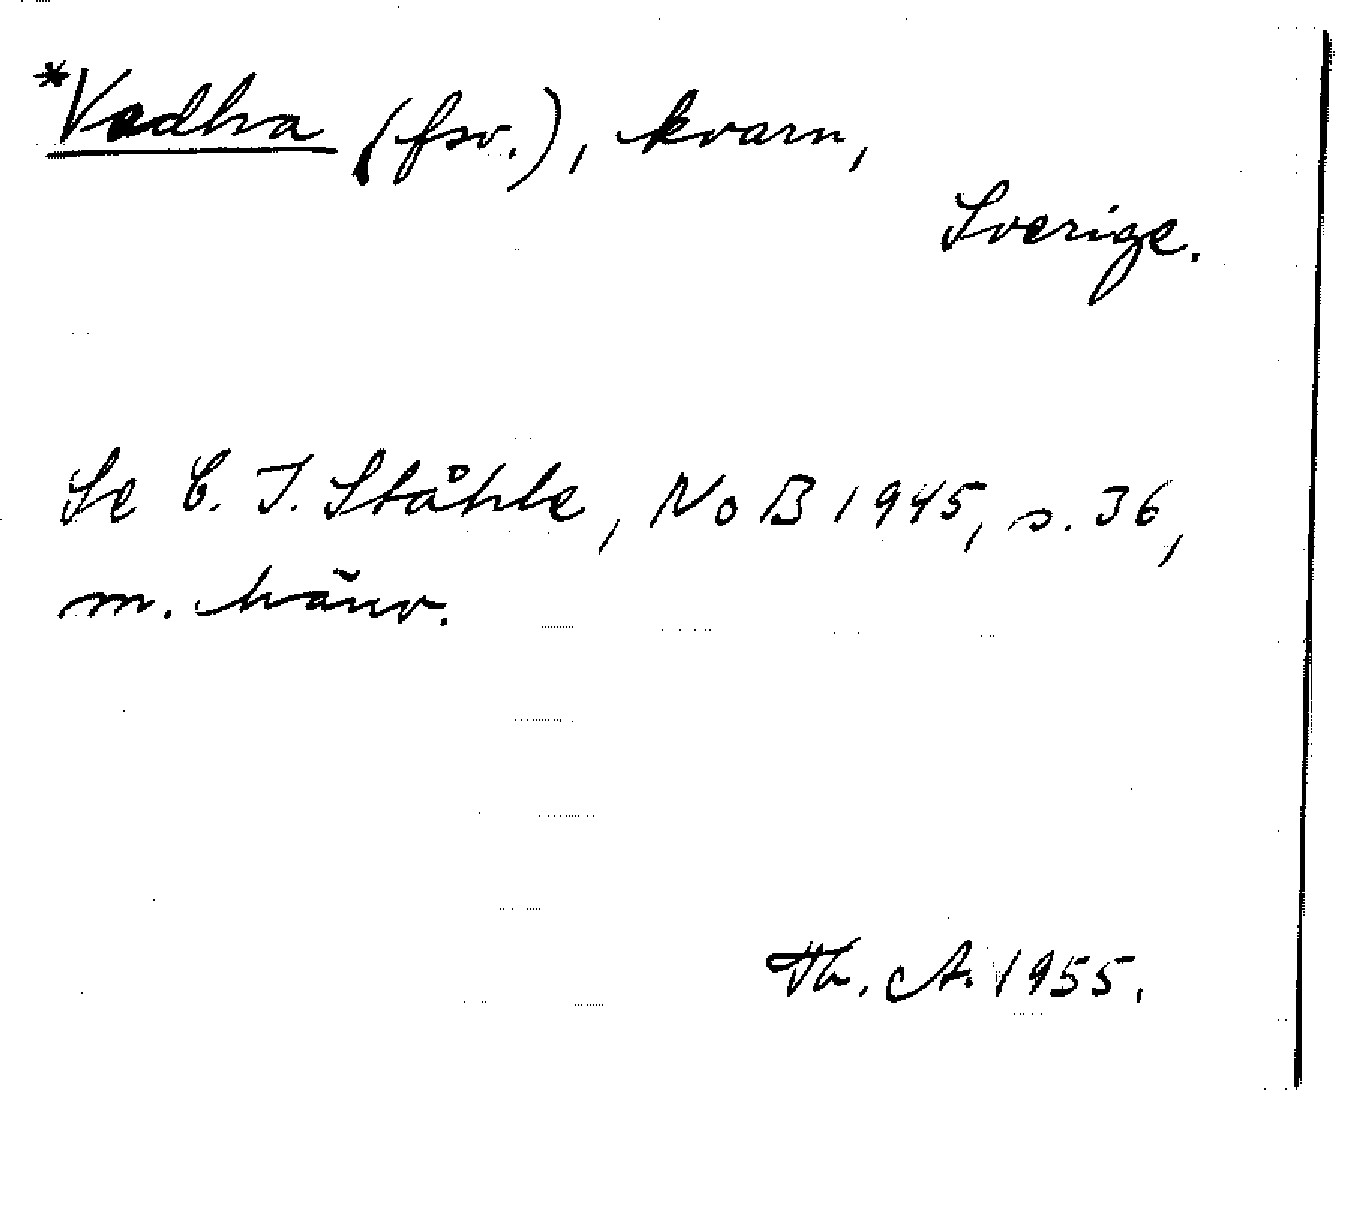 *Vadha (fsv.), kvarn,
Sverige.
Se C. I. Ståhle, NoB 1945, s. 36,
m. hänv.
Th. A. 1955.